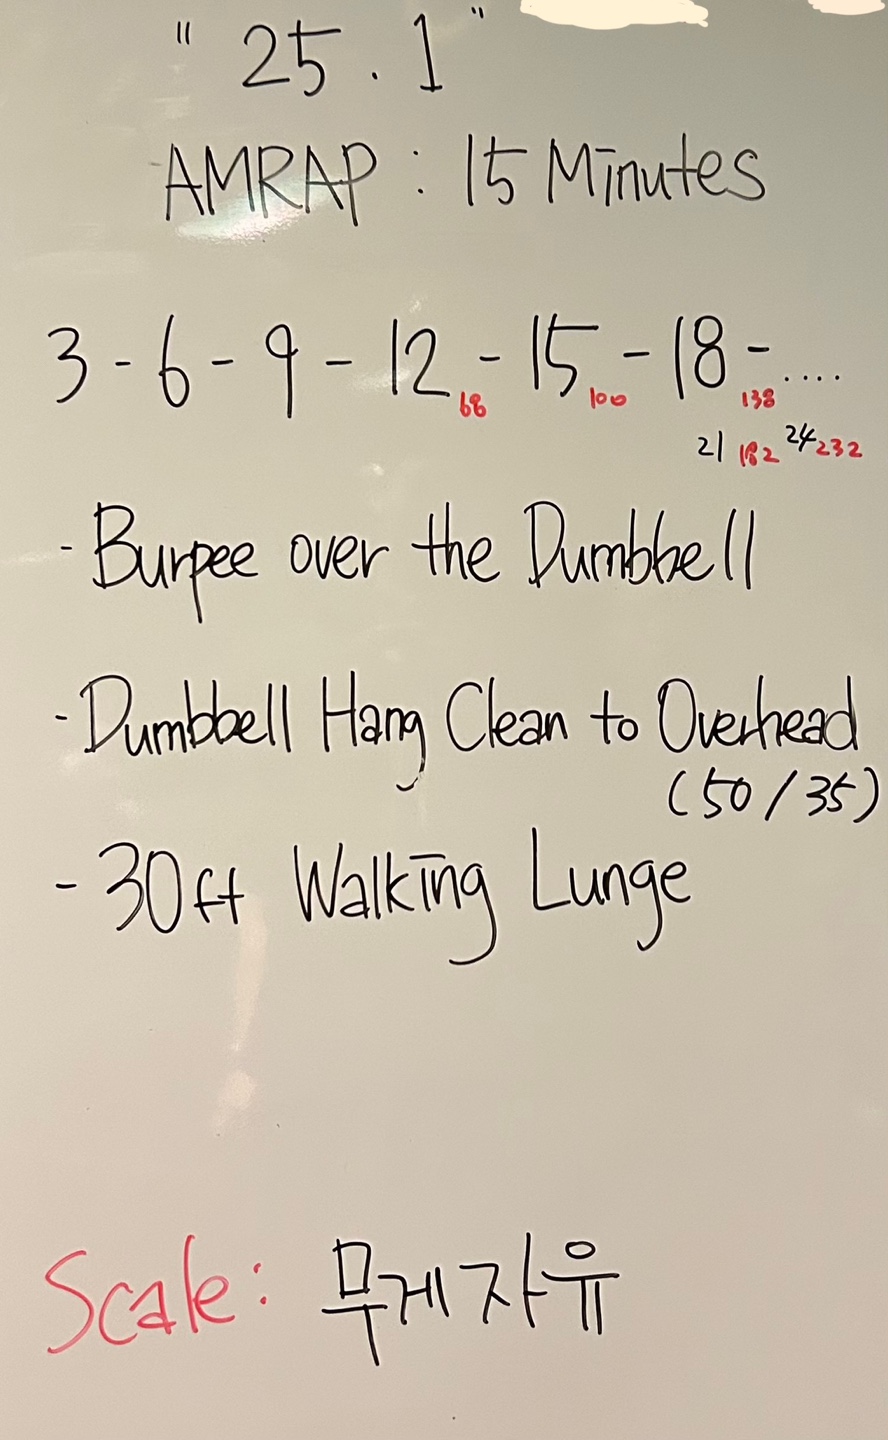 " 25.1 "
AMRAP : 15 Minutes
3 - 6 - 9 - 12 68 - 15 100 - 18 138 - ....
21 182 24 232
- Burpee over the Dumbbell
- Dumbbell Hang Clean to Overhead
(50/35)
- 30ft Walking Lunge
Scale: 무게자유